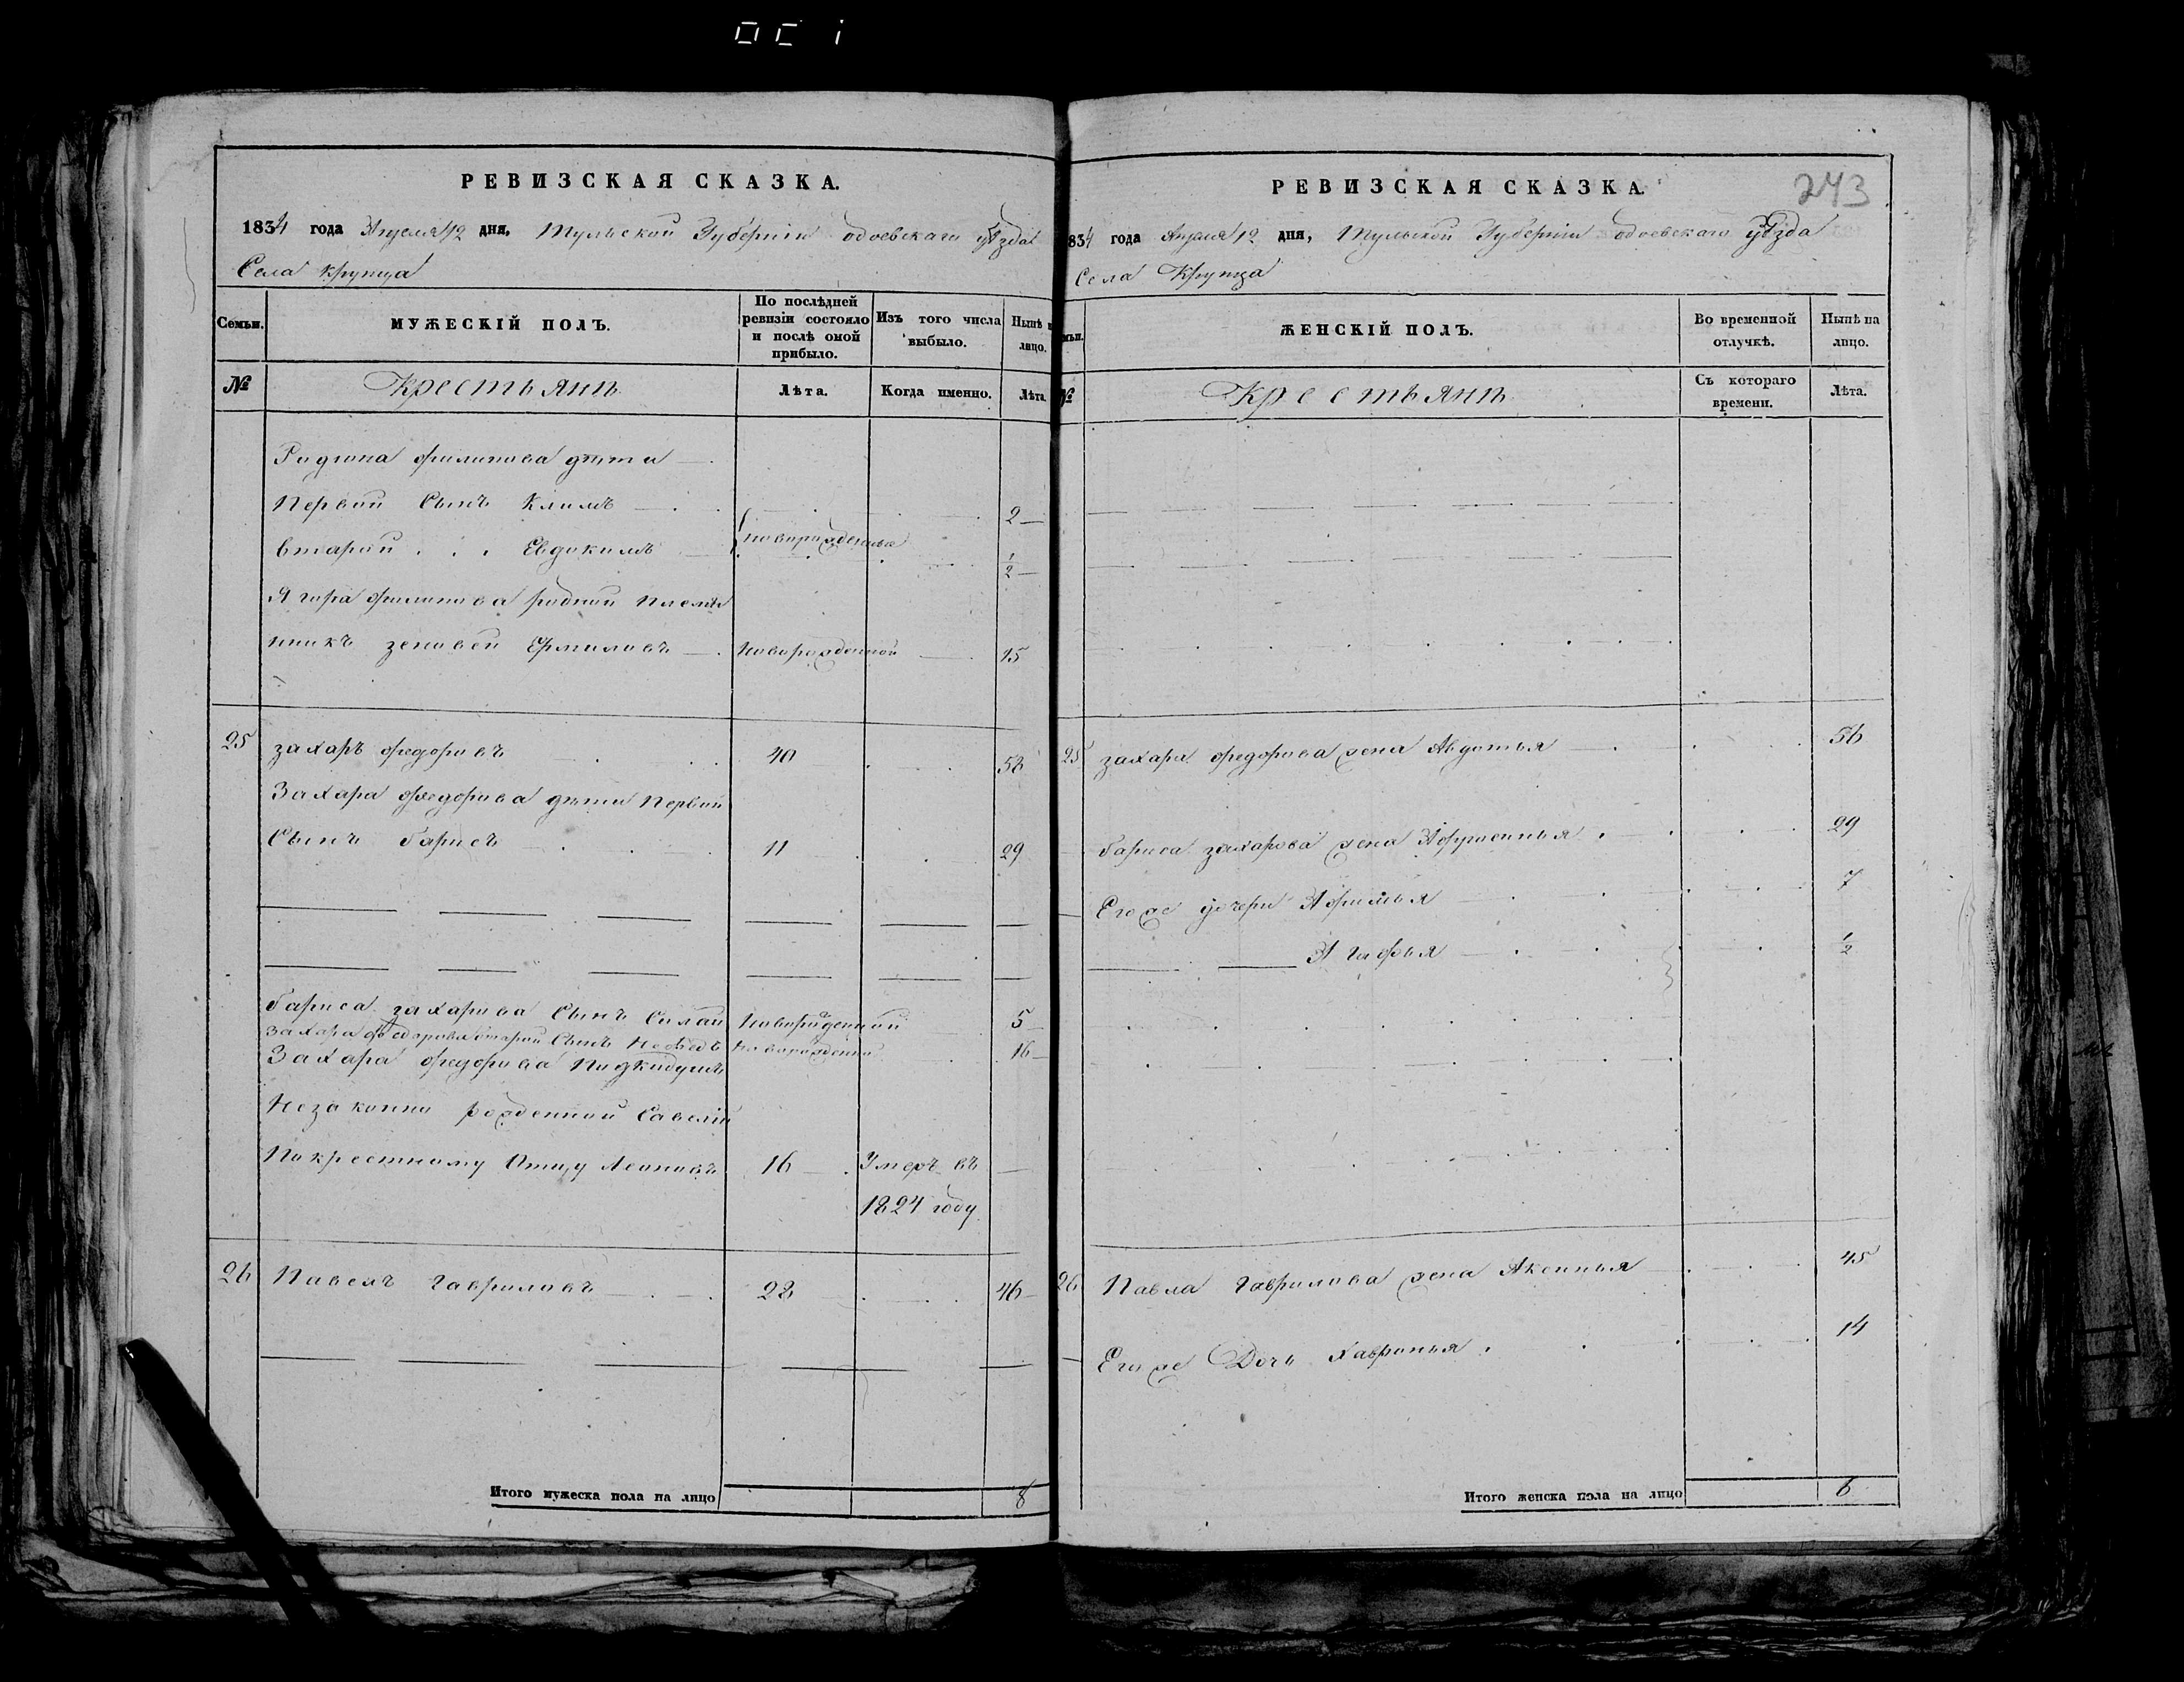 РЕВИЗСКАЯ СКАЗКА.
1834 года Апреля 12 дня, Тульской Губернiи одоевскаго уѣзда
Села крупца
Семьи.
МУЖЕСКIЙ ПОЛЪ.
По послѣдней ревизiи состояло и послѣ оной прибыло.
Изъ того числа выбыло.
Нынѣ на лицо.
№
Крестьянъ
Лѣта.
Когда именно.
Лѣта.
Родиона филипова дѣти
Первый Сынъ Климъ 2
вторай Евдокимъ новорожденые 1/2
Ягора филипова родной племя
нникъ зеновей Ермиловъ Новорожденной 15
25 захаръ федоровъ 40 58
Захара федорова дѣти Первой
Сынъ барисъ 11 29
бариса захарова Сынъ Силай Новорожденной 5
Захара федорова вторай Сынъ Новорожденной 16
Захара федорова Подкидушъ
Незаконно рожденной Савелiй
По крестному Отцу Леоновъ 16 Умеръ въ
1824 году
26 Павелъ гавриловъ 28 46
Итого мужеска пола на лицо 8
243
РЕВИЗСКАЯ СКАЗКА.
834 года Апреля 12 дня, Тульской Губернiи одоевскаго уѣзда
Села Крупца
мьи.
ЖЕНСКIЙ ПОЛЪ.
Во временной отлучкѣ.
Нынѣ на лицо.
№
Крестьянъ
Съ котораго времени.
Лѣта.
25 захара федорова жена Авдотья 56
бариса захарова жена Афросинья 29
Егоже дочери Афимья 7
Агафья 1/2
26 Павла гаврилова жена Аксинья 45
Егоже Дочь Хавронья 14
Итого женска пола на лицо 6